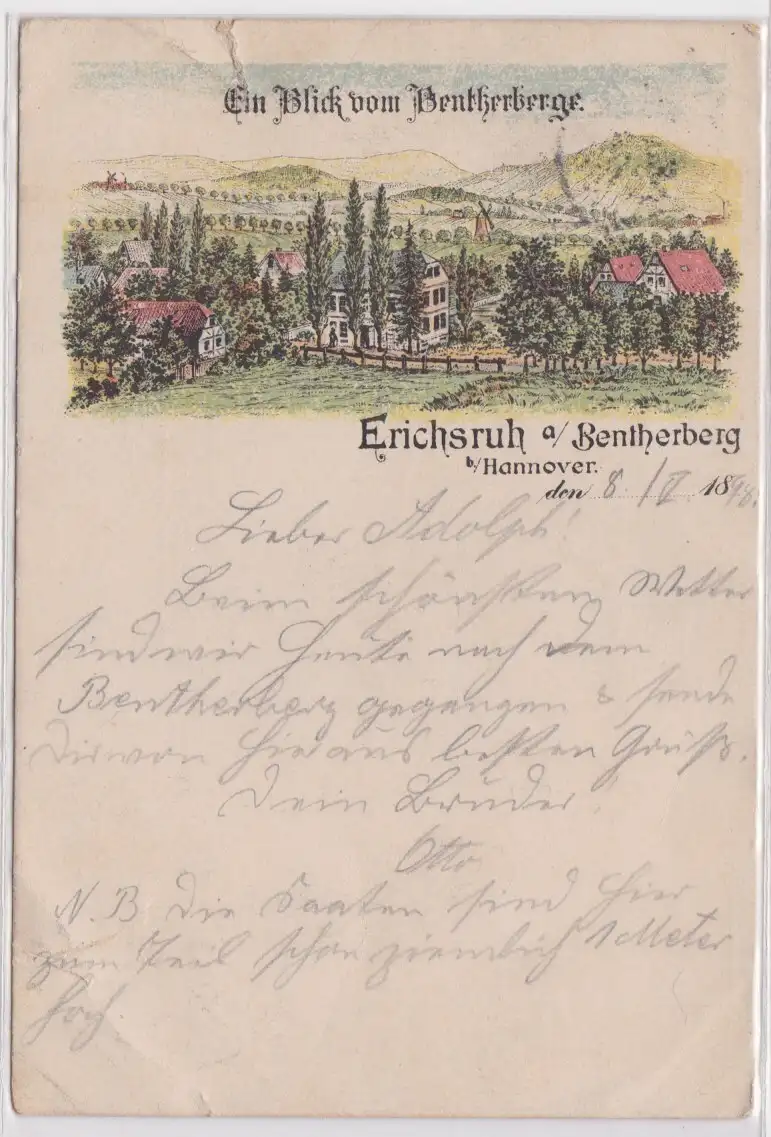 Ein Blick vom Bentherberge.
Erichsruh a/ Bentherberg
b/Hannover.
den 8./V. 1898.
Lieber Adolph!
Beim schönsten Wetter
sind wir heute nach dem
Bentherberg gegangen & sende
Dir von hier aus besten Gruß.
Dein Bruder
Otto
N.B Die Saaten sind hier
zum Teil schon ziemlich 1 Meter
hoch.